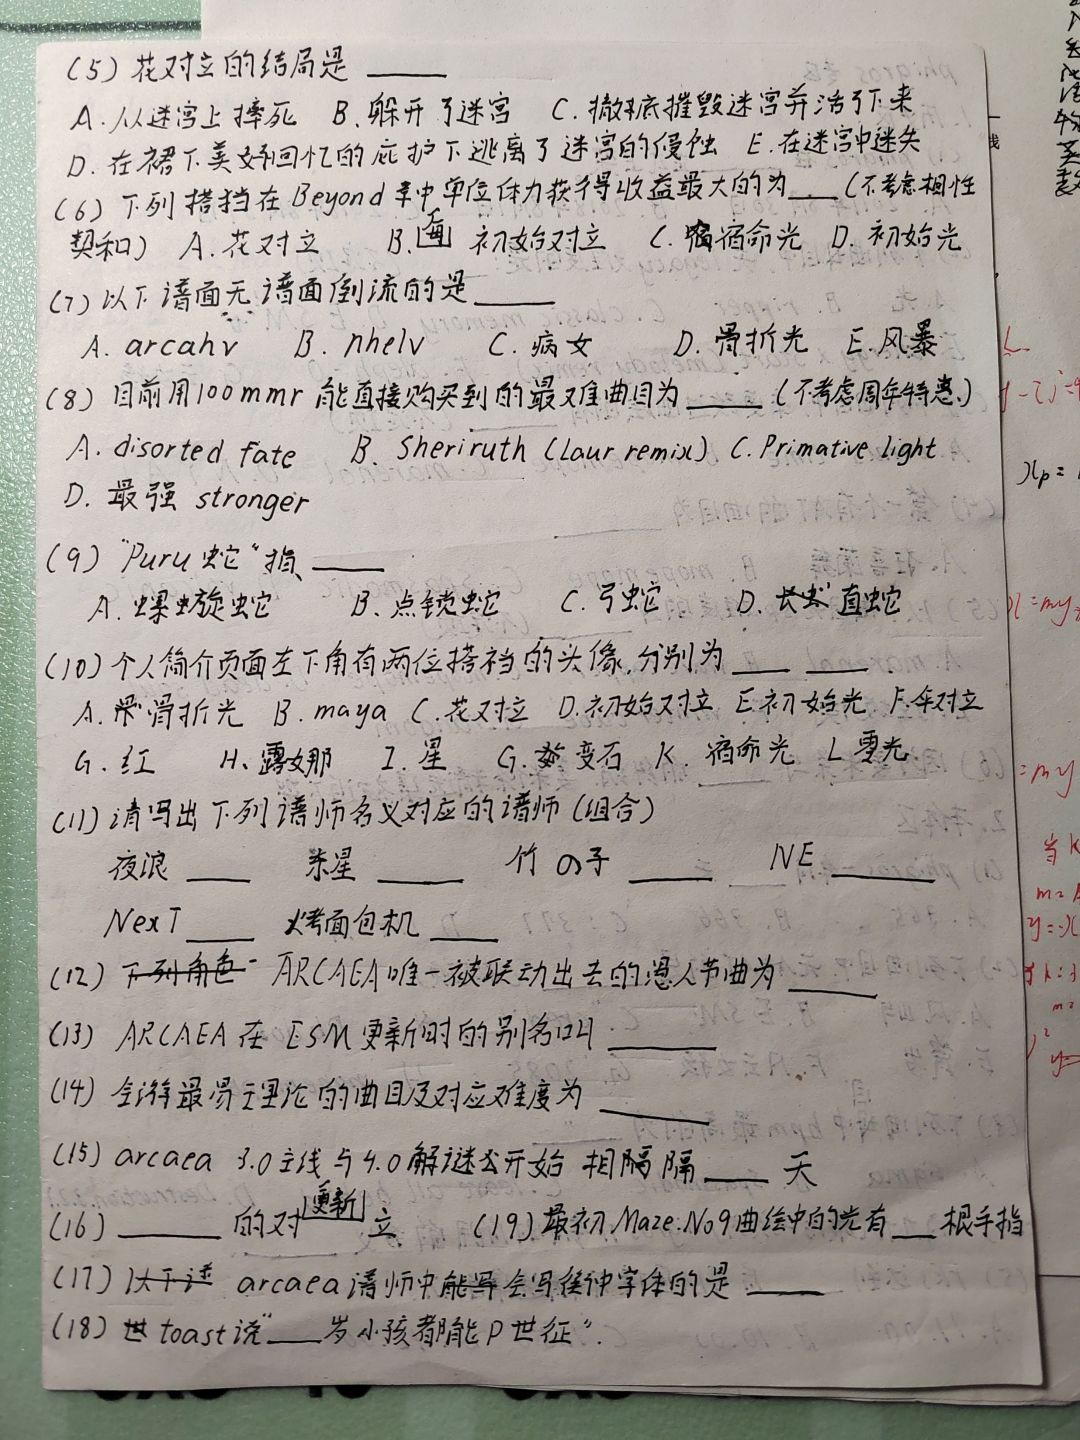 (5) 花对立的结局是 ____
A. 从迷宫上摔死 B. 躲开了迷宫 C. 撤底摧毁迷宫并活了下来
D. 在裙下美好回忆的庇护下逃离了迷宫的侵蚀 E. 在迷宫中迷失
(6) 下列搭挡在Beyond章中单位体力获得收益最大的为 ___ (不考虑相性
契和) A. 花对立 B. 初始对立 C. 宿命光 D. 初始光
(7) 以下谱面无谱面倒流的是 ____
A. arcahv B. nhelv C. 病女 D. 骨折光 E. 风暴
(8) 目前用100mmr能直接购买到的最难曲目为 ____ (不考虑周年特惠.)
A. disorted fate B. Sheriruth (Laur remix) C. Primative light
D. 最强 stronger
(9) "Puru蛇"指 ____
A. 螺旋蛇 B. 点锁蛇 C. 弓蛇 D. 直蛇
(10) 个人简介页面左下角有两位搭裆的头像,分别为 ___ ___ .
A. 骨折光 B. maya C. 花对立 D. 初始对立 E. 初始光 F. 伞对立
G. 红 H. 露娜 I. 星 G. 变石 K. 宿命光 L 零光
(11) 请写出下列谱师名义对应的谱师 (组合)
夜浪 ___ 东星 ____ 竹の子 ____ NE ____
NexT ____ 烤面包机 ____
(12) 下列角色 ARCAEA唯一被联动出去的愚人节曲为 ____
(13) ARCAEA在ESM更新时的别名叫 _____
(14) 全游最易理论的曲目及对应难度为 _____
(15) arcaea 3.0主线与4.0解谜公开始相隔隔 ___ 天
(16) _____ 的对立 更新 (19) 最初Maze.No9曲绘中的光有 __ 根手指
(17) 以下谱 arcaea谱师中能写会写楼梯字体的是 ____
(18) toast说"___岁小孩都能P世征".